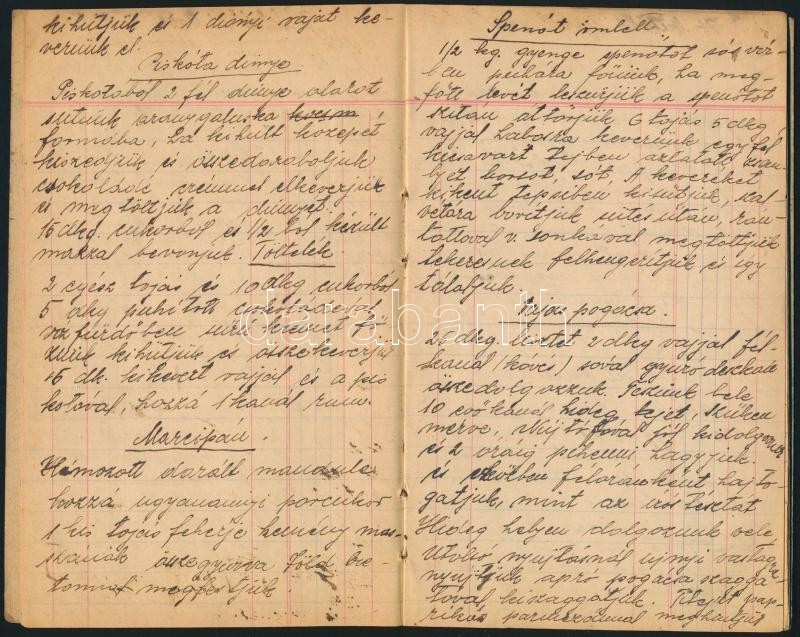 kihütjük és 1 diónyi vajat ke-
verünk el.
Piskóta dinnye
Piskótából 2 fél dinnye alakot
sütünk aranygaluska
formába, ha kihült közepét
kiszedjük és összedaraboljuk
csokoládé cremmel elkeverjük
és megtöltjük a dinnyét.
15 dkg. cukorból és 1/2 ból készült
mázzal bevonjuk. Töltelék.
2 egész tojás és 10 dkg cukorból
5 dkg puhitott csokoládéból
vizfürdőben sürü krémet fő-
zünk kihütjük és összekeverjük
15 dk. kikevert vajjal és a pis
kótával, hozzá 1 kanál rum.
Marcipán.
Hámozott darált mandula
hozzá ugyanannyi porcukor
1 kis tojás fehérje kemény mas-
szának összegyúrva
megfestjük.
Spenót omlett
1/2 kg. gyenge spenótot sós víz-
ben puhára főzünk, ha meg-
főtt levét leszürjük a spenótot
szitán áttörjük 6 tojás 5 dkg
vajjal habosra keverünk egy fél
kicsavart tejben áztatott zsem-
lyét borsot, sót. A keveréket
kikent tepsiben kisütjük, szal-
vétára borítjuk sütés után, rán-
tottával v. sonkával megtöltjük
tekercsnek felhengerítjük és így
tálaljuk.
Vajas pogácsa.
dkg. lisztet 2 dkg vajjal fél-
kanál (kávés) sóval gyúró deszkán
összedolgozzuk. Teszünk bele
10 evőkanál hideg tejet, szűken
merve, jól kidolgozzuk
és 2 óráig pihenni hagyjuk.
és közben félóránként hajto-
gatjuk, mint az vostésztát
Hideg helyen dolgozunk vele
Utolsó nyujtásnál ujjnyi vastagra
nyujtjuk apró pogácsa szaggató-
tóval kiszaggatjuk. Tetejét pap-
rikás parmezánnal meghintjük
darabanth